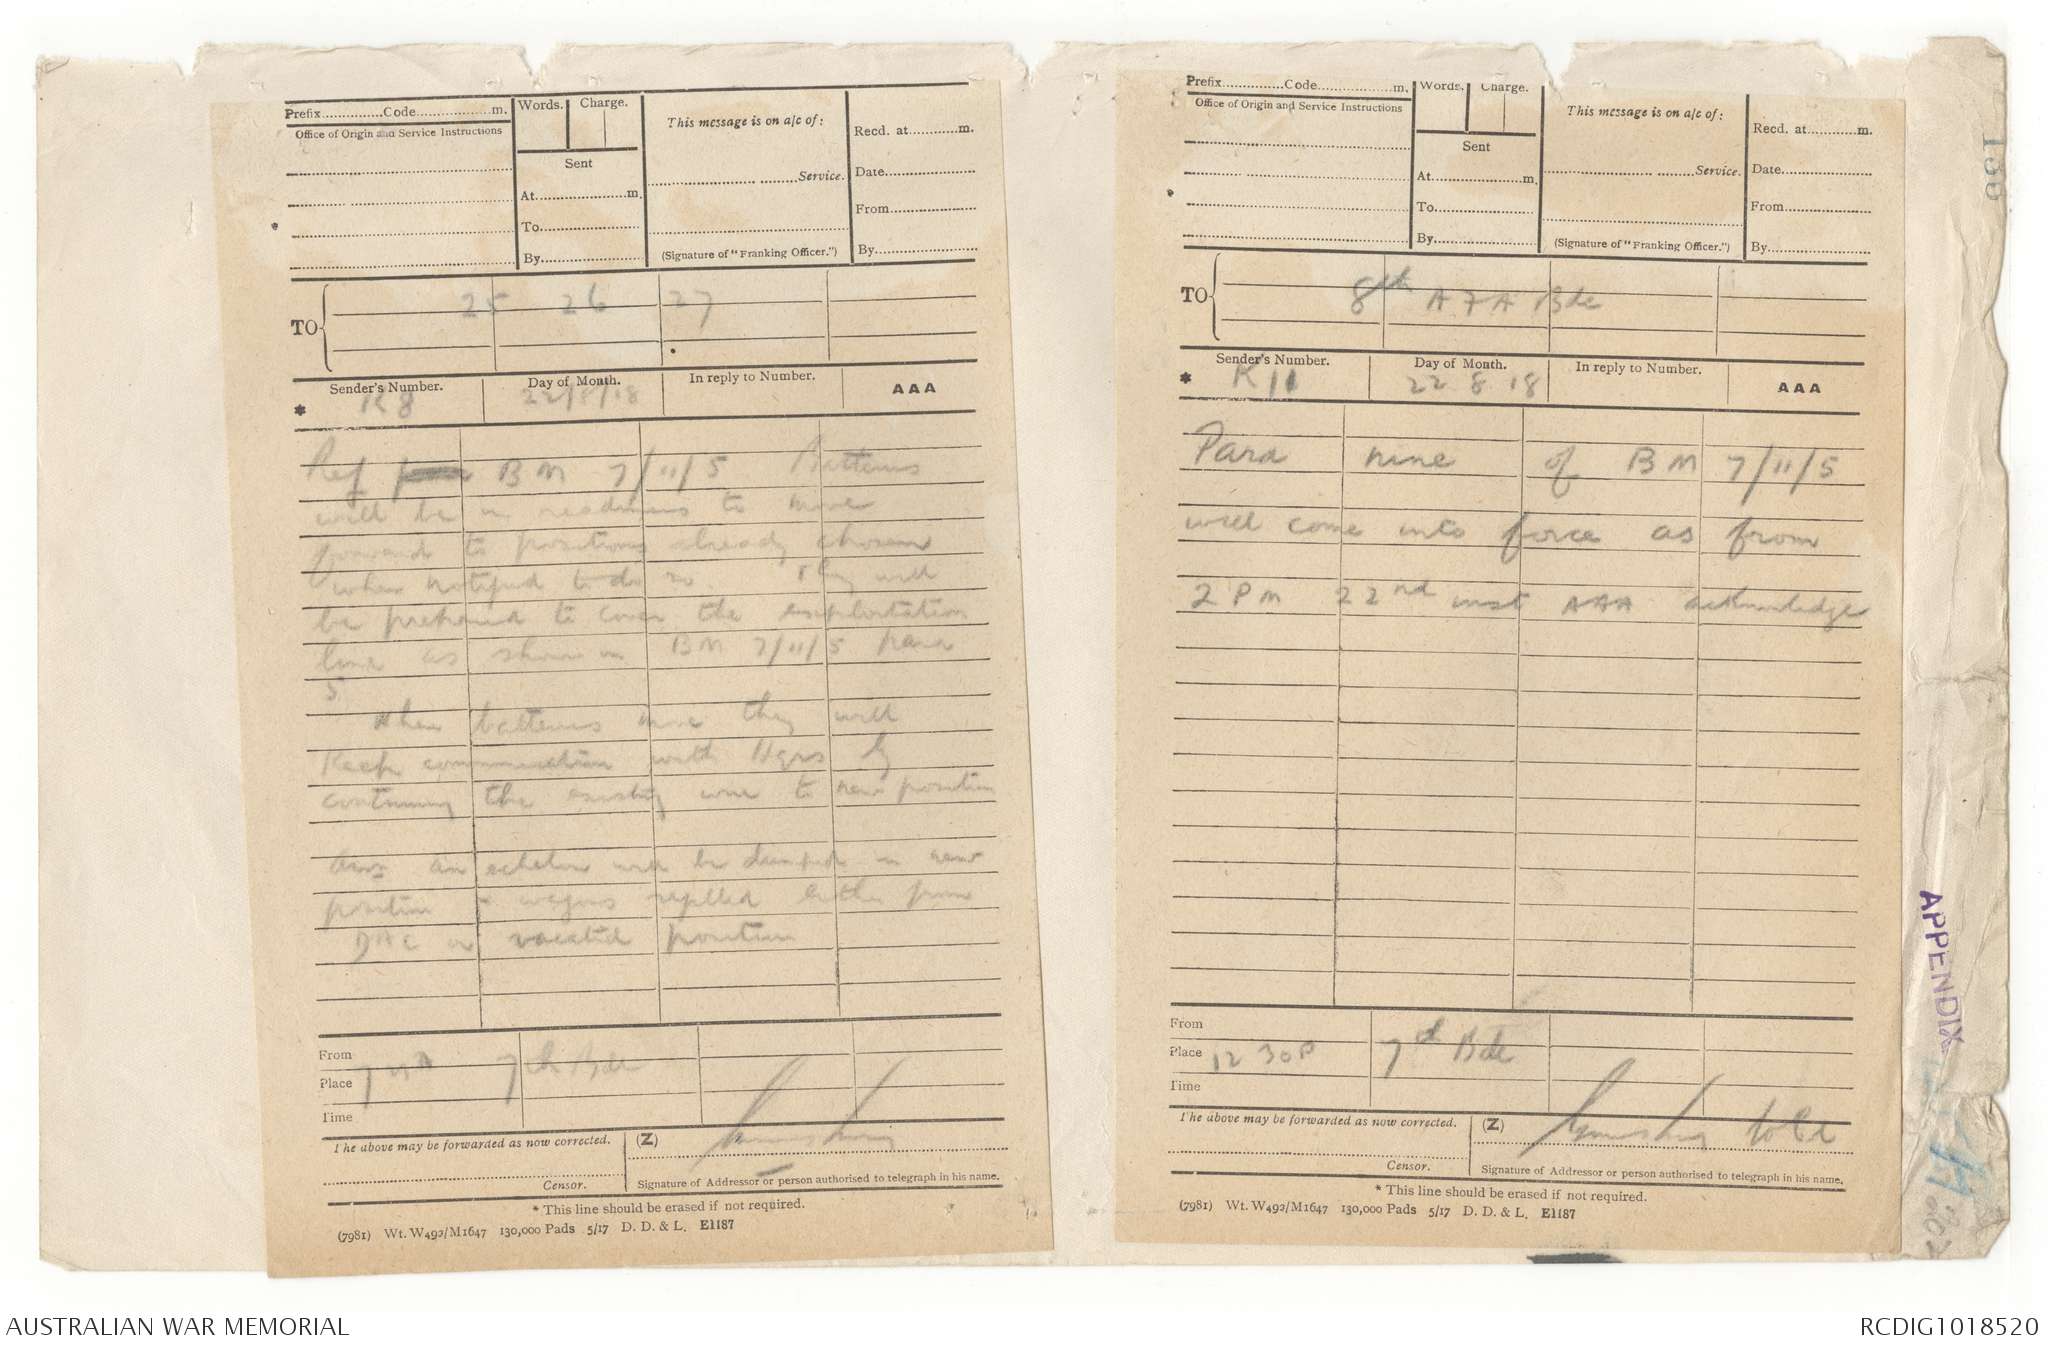 Prefix..............Code..................m.
Office of Origin and Service Instructions
Words.
Charge.
Sent
At......................m.
To.......................
By.......................
This message is on a/c of:
Service.
(Signature of "Franking Officer.")
Recd. at............m.
Date....................
From...................
By.......................
TO
25 26 27
Sender's Number.
Day of Month.
In reply to Number.
AAA
* K8
22/8/18
Ref BM 7/11/5 Batteries
will be in readiness to move
forward to positions already chosen
when notified to do so. They will
be prepared to cover the exploitation
line as shown in BM 7/11/5 para
5
When batteries move they will
Keep communication with Hqrs by
continuing the existing wire to new position
Amn in echelon will be dumped in new
position & wagons refilled either from
DAC or vacated position
From
Place
Time
7th Bde
The above may be forwarded as now corrected.
(Z)
Censor.
Signature of Addressor or person authorised to telegraph in his name.
* This line should be erased if not required.
(7981) Wt. W492/M1647 130,000 Pads 5/17 D. D. & L. E1187
Prefix..............Code..................m.
Office of Origin and Service Instructions
Words.
Charge.
Sent
At......................m.
To.......................
By.......................
This message is on a/c of:
Service.
(Signature of "Franking Officer.")
Recd. at............m.
Date....................
From...................
By.......................
TO
8th AFA Bde
Sender's Number.
Day of Month.
In reply to Number.
AAA
* K11
22 8 18
Para nine of BM 7/11/5
will come into force as from
2 PM 22nd inst AAA acknowledge
From
Place
Time
12 30P
7th Bde
The above may be forwarded as now corrected.
(Z)
Censor.
Signature of Addressor or person authorised to telegraph in his name.
* This line should be erased if not required.
(7981) Wt. W492/M1647 130,000 Pads 5/17 D. D. & L. E1187
136
APPENDIX
AUSTRALIAN WAR MEMORIAL
RCDIG1018520